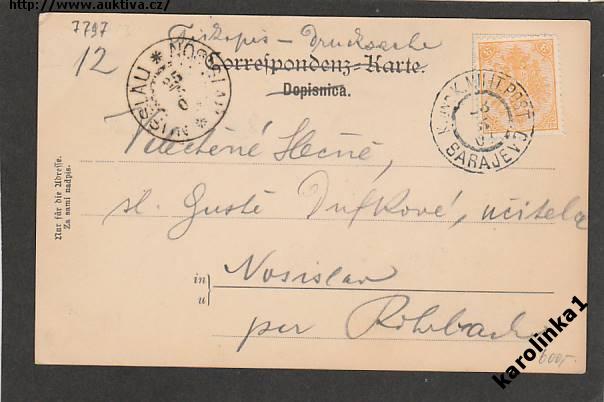 https://www.auktiva.cz/
7797
12
Tiskopis – Drucksache
Correspondenz-Karte.
Dopisnica.
NOSISLAU * NUSSLAU *
25
K. UND K. MILIT. POST
SARAJEVO
Velectěné Slečně,
sl. Gustě Dufkové, učitelce
in
u
Nosislav
per Rohrbach
Nur für die Adresse.
Za sami nadpis.
600,-
karolinka1